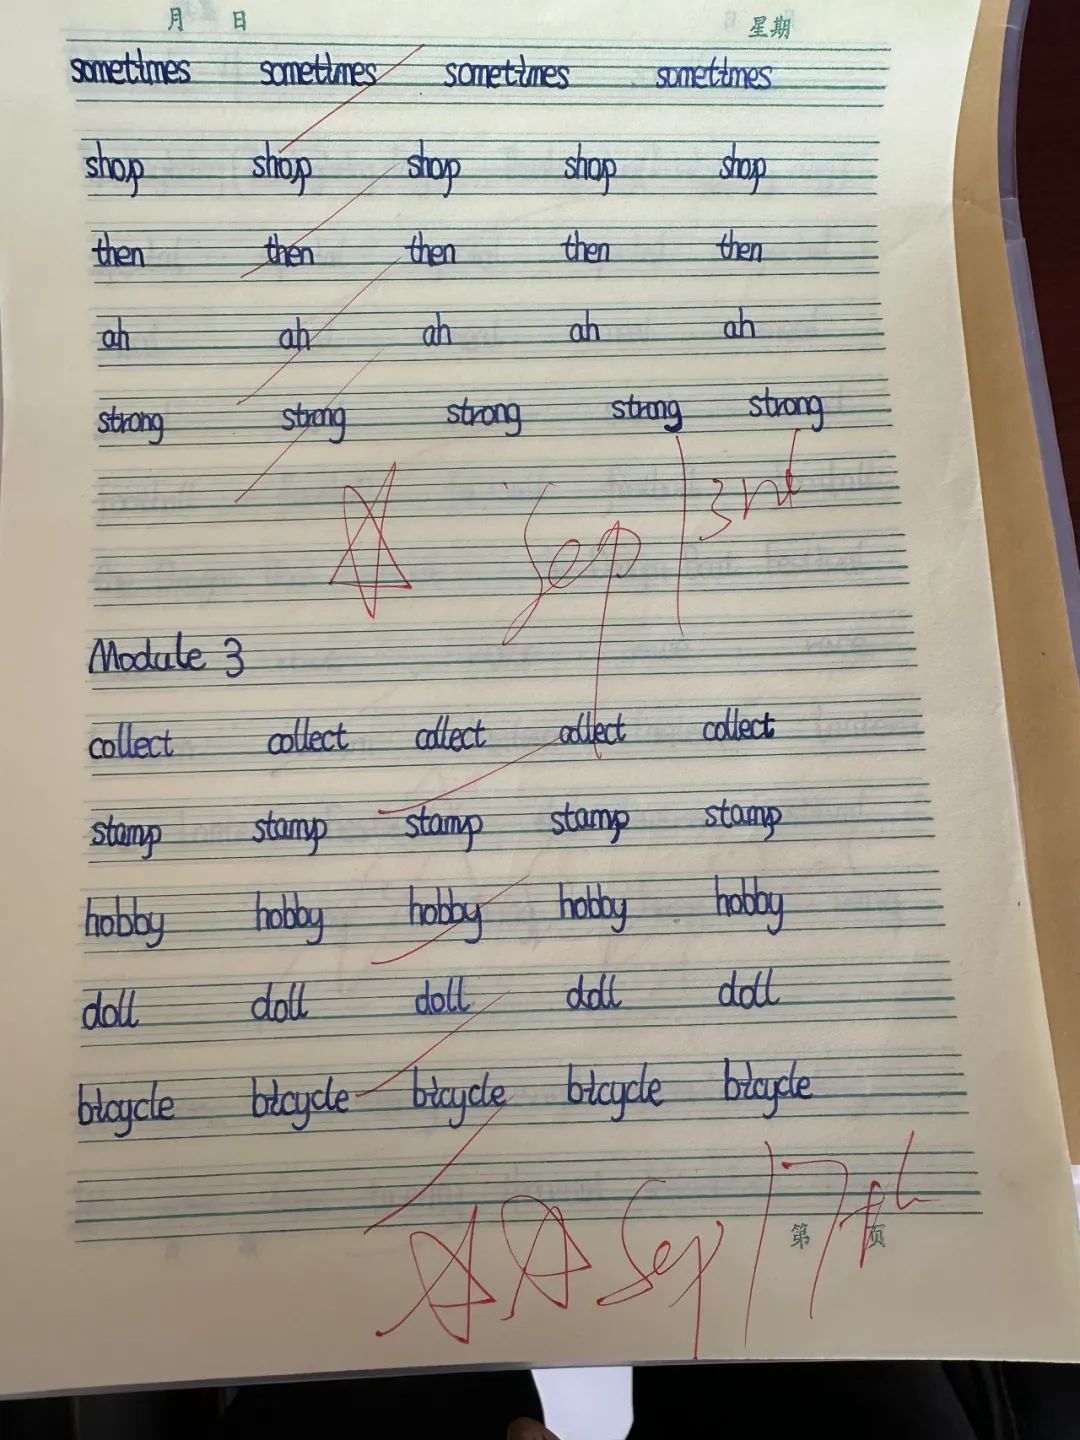 月 日 星期
sometimes sometimes sometimes sometimes
shop shop shop shop shop
then then then then then
ah ah ah ah ah
strong strong strong strong strong
Sep 13rd
Module 3
collect collect collect collect collect
stamp stamp stamp stamp stamp
hobby hobby hobby hobby hobby
doll doll doll doll doll
bicycle bicycle bicycle bicycle bicycle
Sep 17th
第 页